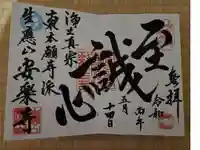 奉拝
令和
五月
十四日
至誠心
浄土真宗
東本願寺派
生應山 安樂寺